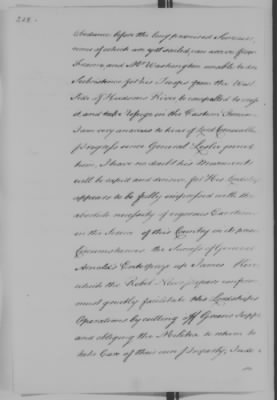 218.
abundance before the long promised Succours,
none of which are yet sailed, can arrive from
France, and Mr Washington unable to draw
Subsistence for his Troops from the West
Side of Hudsons River be compelled to cross
it, and take refuge in the Eastern Provinces.
I am very anxious to hear of Lord Cornwallis's
Progress since General Leslie joined
him, I have no doubt his Movements
will be rapid and decisive, for His Lordship
appears to be fully impressed with the
absolute necessity of vigorous Exertions
in the Service of this Country in its present
Circumstances. the Success of General
Arnold's Enterprize up James River
which the Rebel News papers confirm
must greatly facilitate His Lordships
Operations by cutting off Greens Supplies
and obliging the Militia to return to
take Care of their own Property, Inde-